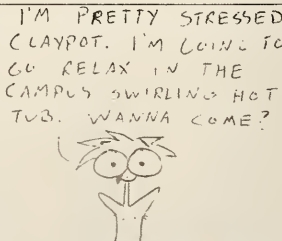 I'M PRETTY STRESSED
CLAYPOT. I'M GOING TO
GO RELAX IN THE
CAMPUS SWIRLING HOT
TUB. WANNA COME?